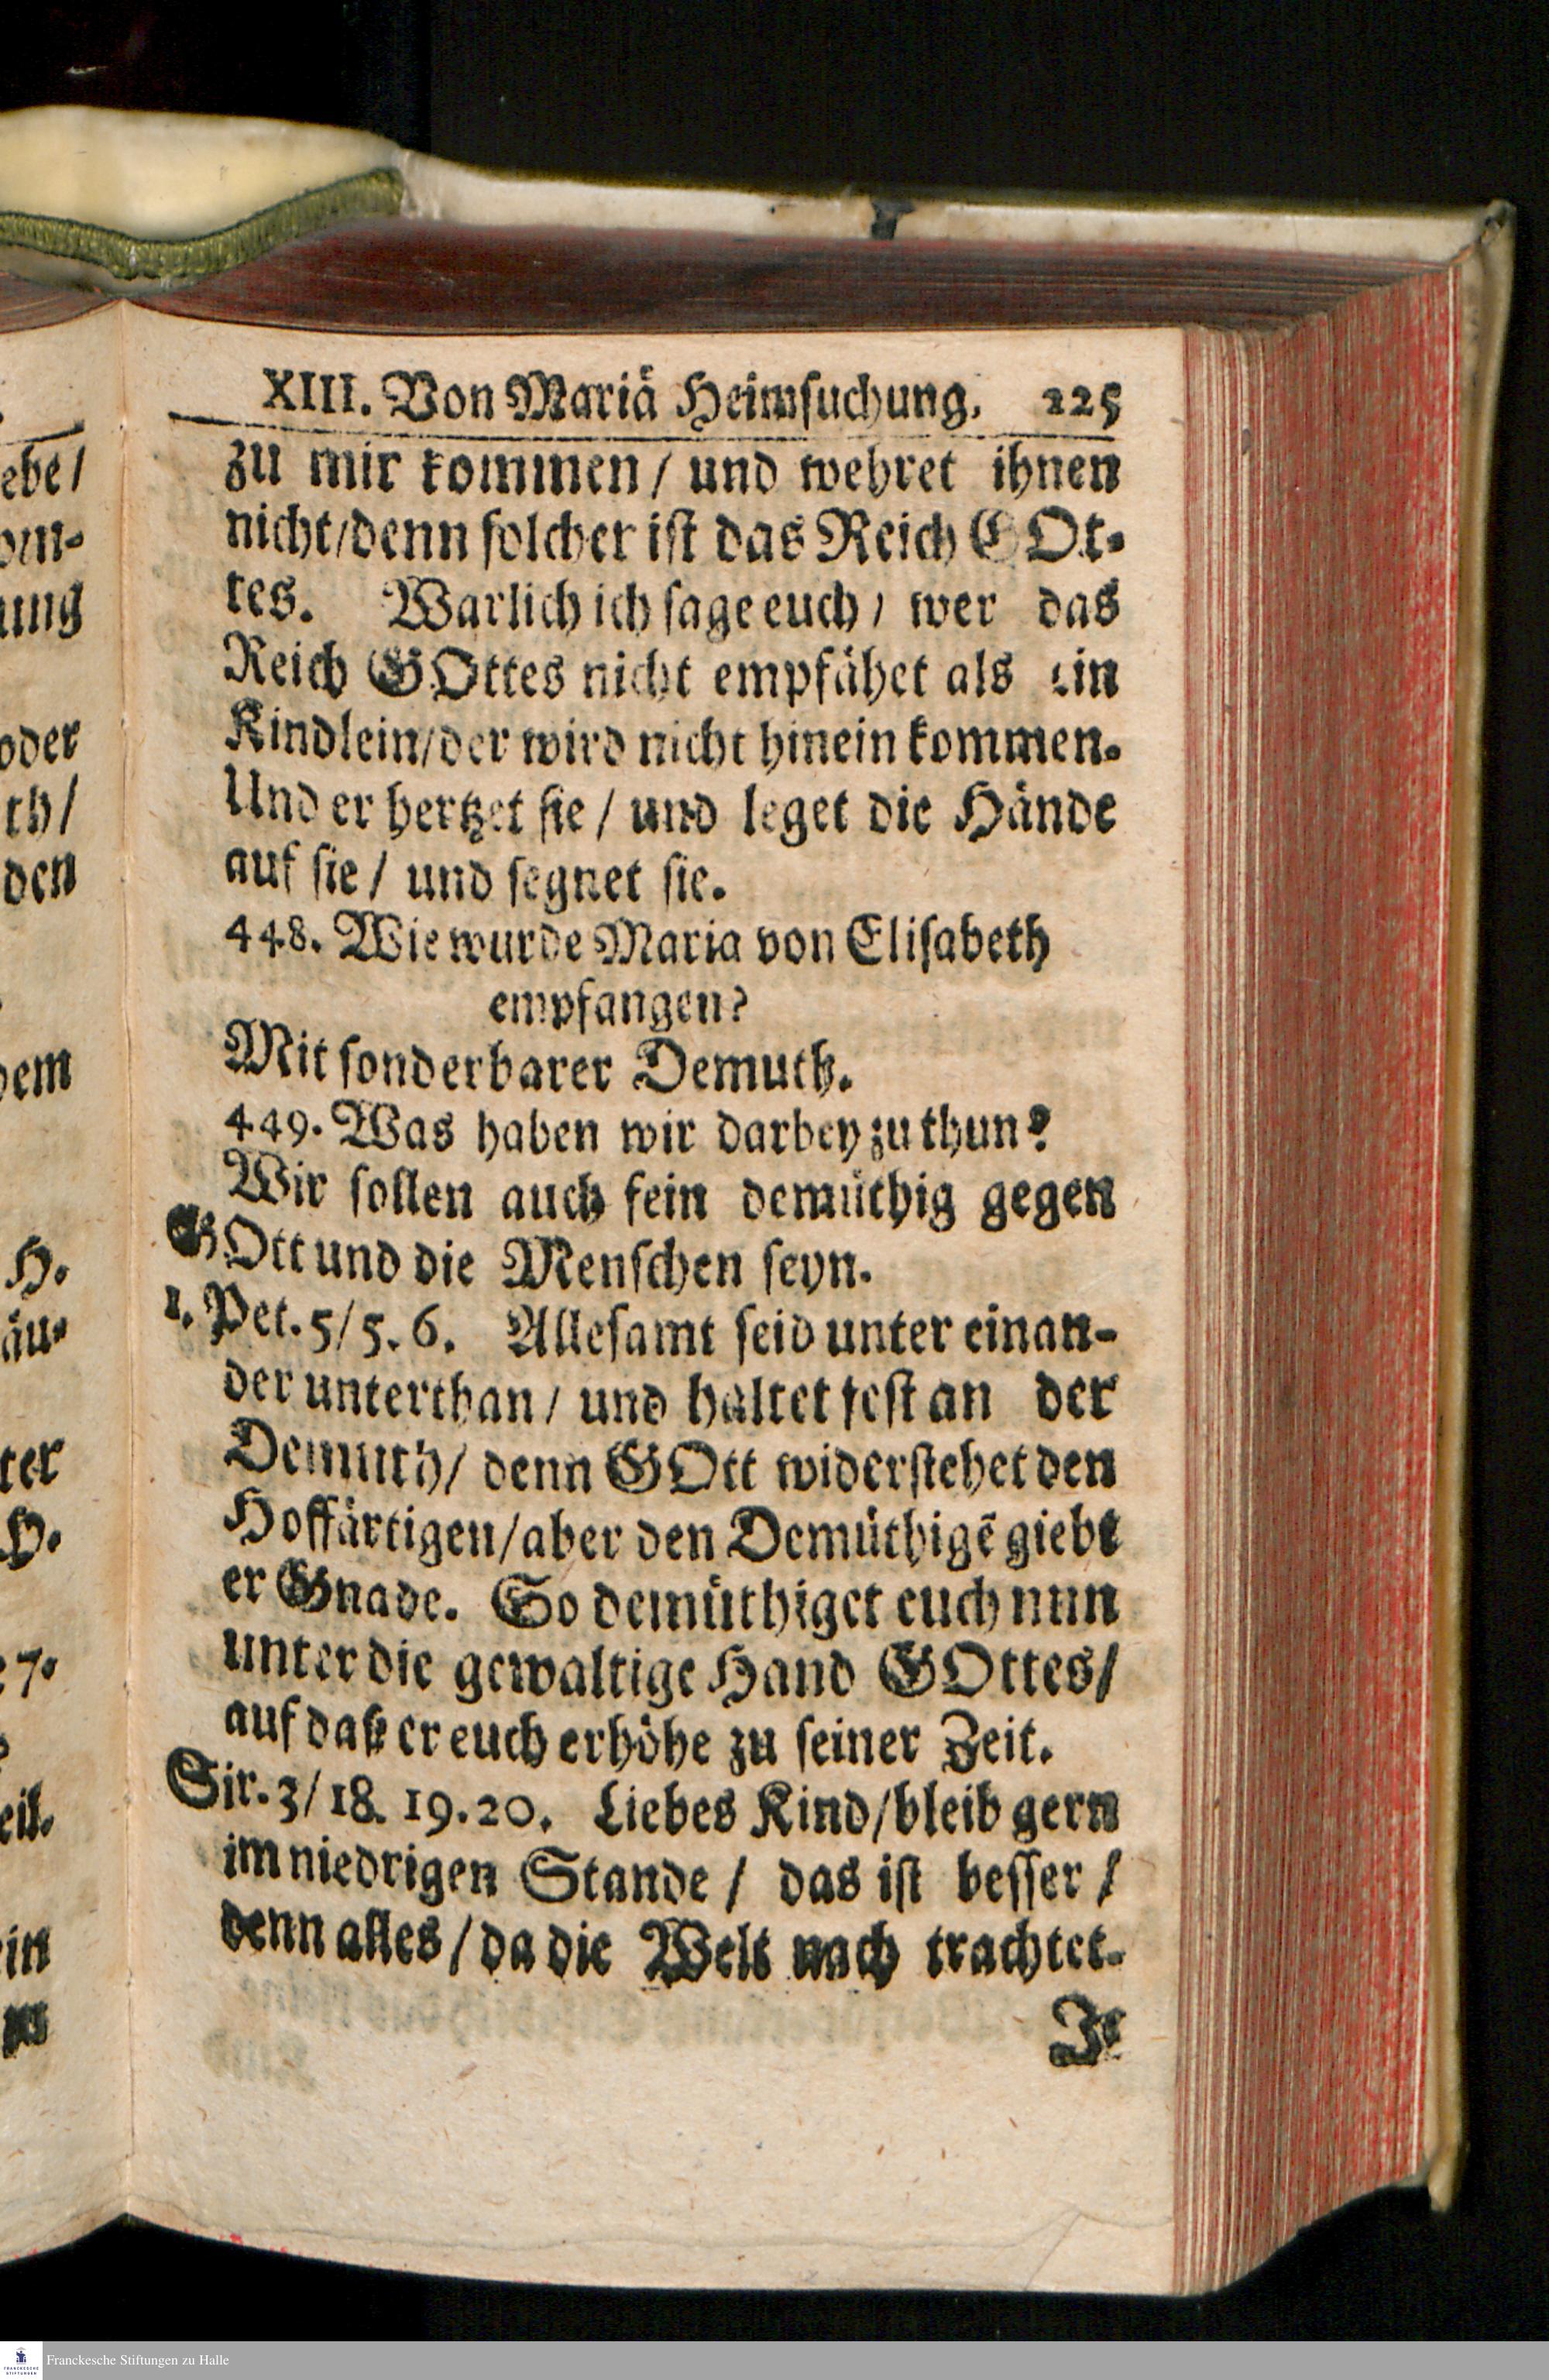 XIII. Von Mariä Heimsuchung. 225
zu mir kommen / und wehret ihnen
nicht/denn solcher ist das Reich GOt-
tes. Warlich ich sage euch / wer das
Reich GOttes nicht empfähet als ein
Kindlein/der wird nicht hinein kommen.
Und er hertzet sie / und leget die Hände
auf sie / und segnet sie.
448. Wie wurde Maria von Elisabeth
empfangen?
Mit sonderbarer Demuth.
449. Was haben wir darbey zu thun?
Wir sollen auch fein demüthig gegen
GOtt und die Menschen seyn.
1. Pet. 5/5. 6. Allesamt seid unter einan-
der unterthan / und haltet fest an der
Demuth/ denn GOtt widerstehet den
Hoffärtigen/aber den Demüthigẽ giebt
er Gnade. So demüthiget euch nun
unter die gewaltige Hand GOttes/
auf daß er euch erhöhe zu seiner Zeit.
Sir. 3/18. 19. 20. Liebes Kind/bleib gern
im niedrigen Stande / das ist besser /
denn alles / da die Welt nach trachtet.
Je
ebe/
ung
oder
th/
den
dem
H.
äu-
ter
H.
7.
eil.
in
Franckesche Stiftungen zu Halle
FRANCKESCHE
STIFTUNGEN